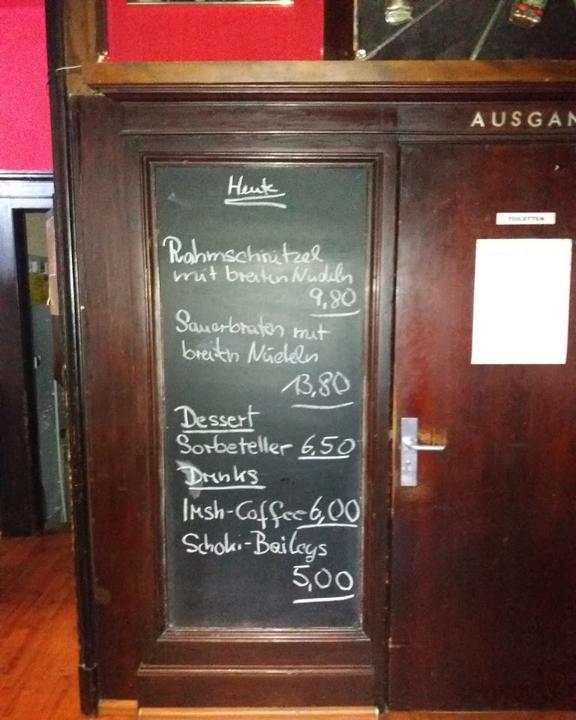 AUSGAN
TOILETTEN
Heute
Rahmschnitzel
mit breiten Nudeln
9,80
Sauerbraten mit
breiten Nudeln
13,80
Dessert
Sorbeteller 6,50
Drinks
Irish-Coffee 6,00
Schoko-Baileys
5,00